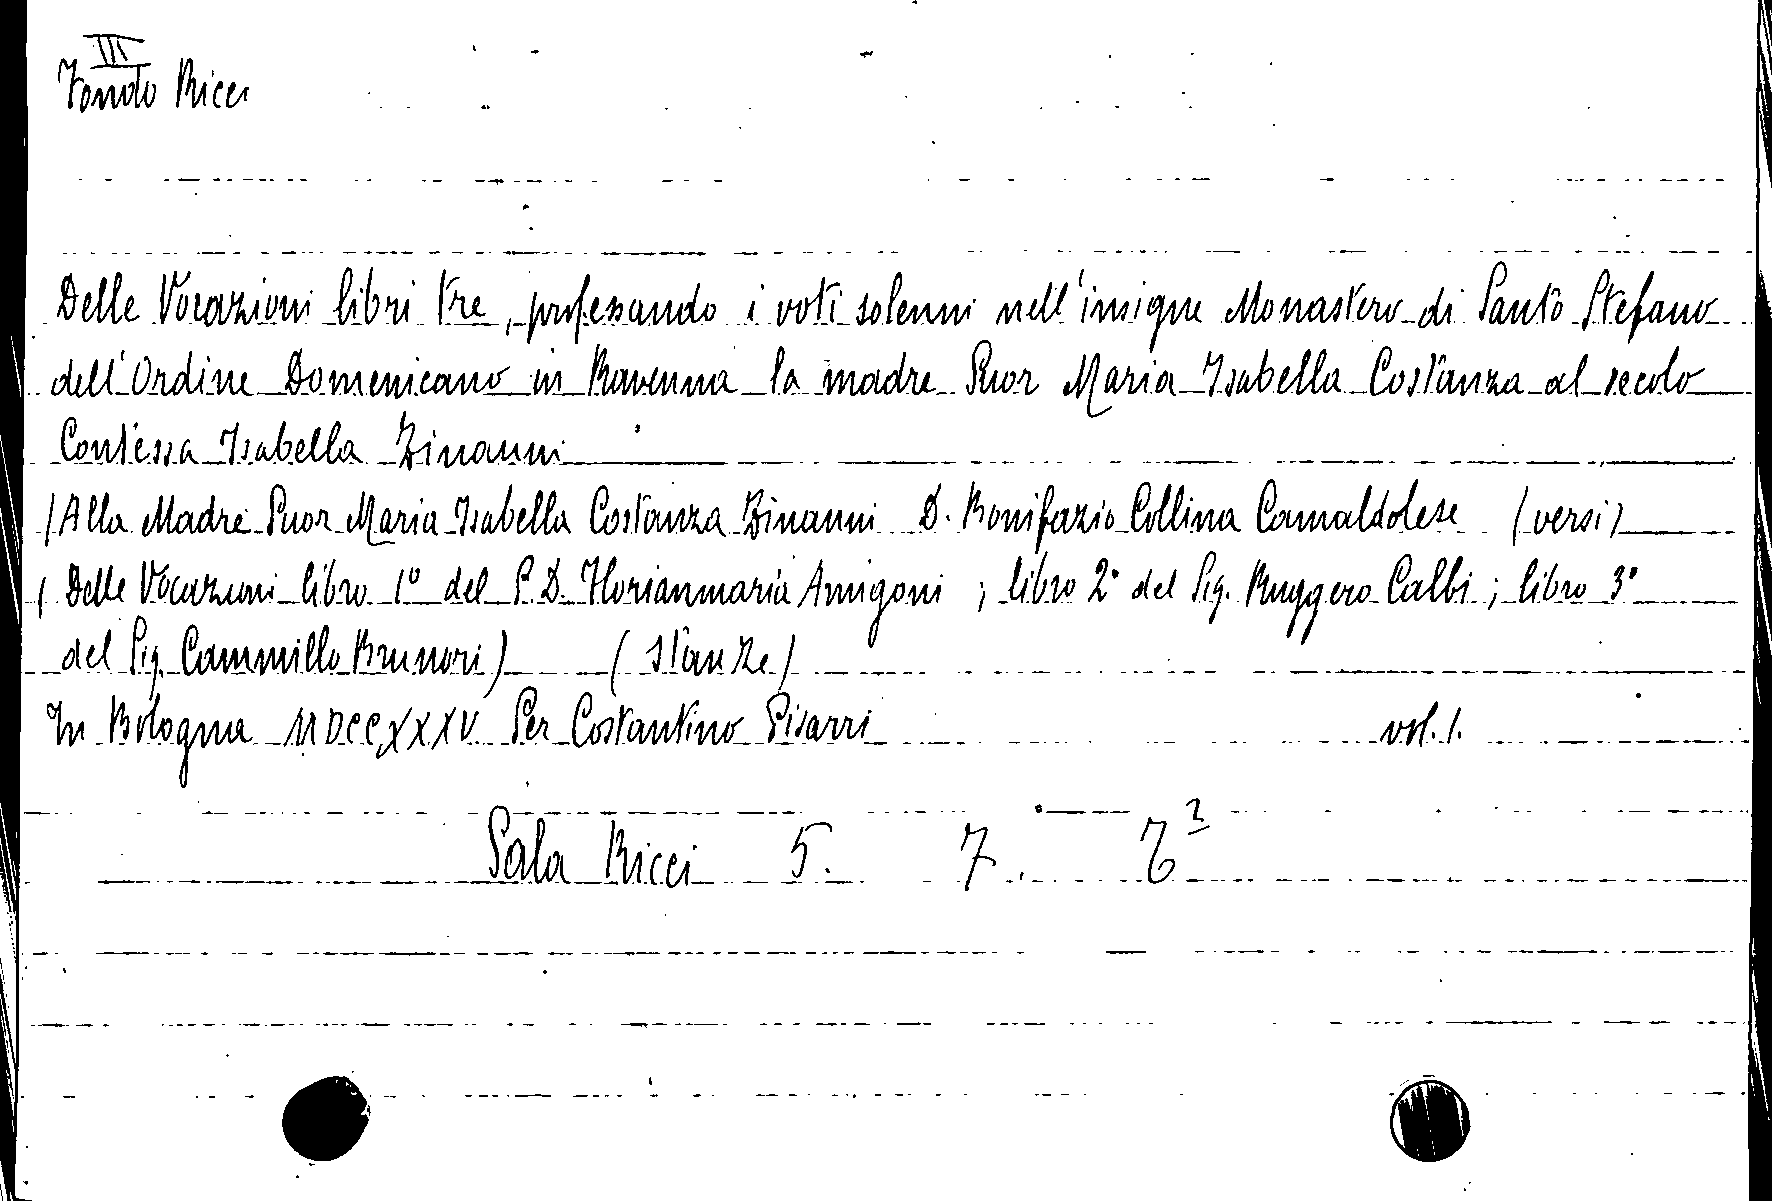 III
Fondo Ricci
Delle Vocazioni libri tre, professando i voti solenni nell'insigne Monastero di Santo Stefano
dell'Ordine Domenicano in Ravenna la madre Suor Maria Isabella Costanza al secolo
Contessa Isabella Zinanni
(Alla Madre Suor Maria Isabella Costanza Zinanni D. Bonifazio Collina Camaldolese (versi)
( Delle Vocazioni libro 1° del P. D. Florianmaria Amigoni ; libro 2° del Sig. Ruggero Calbi ; libro 3°
del Sig. Cammillo Brunori) (stanze)
In Bologna MDCCXXXV Per Costantino Pisarri vol. 1.
Sala Ricci 5. 7. 6²